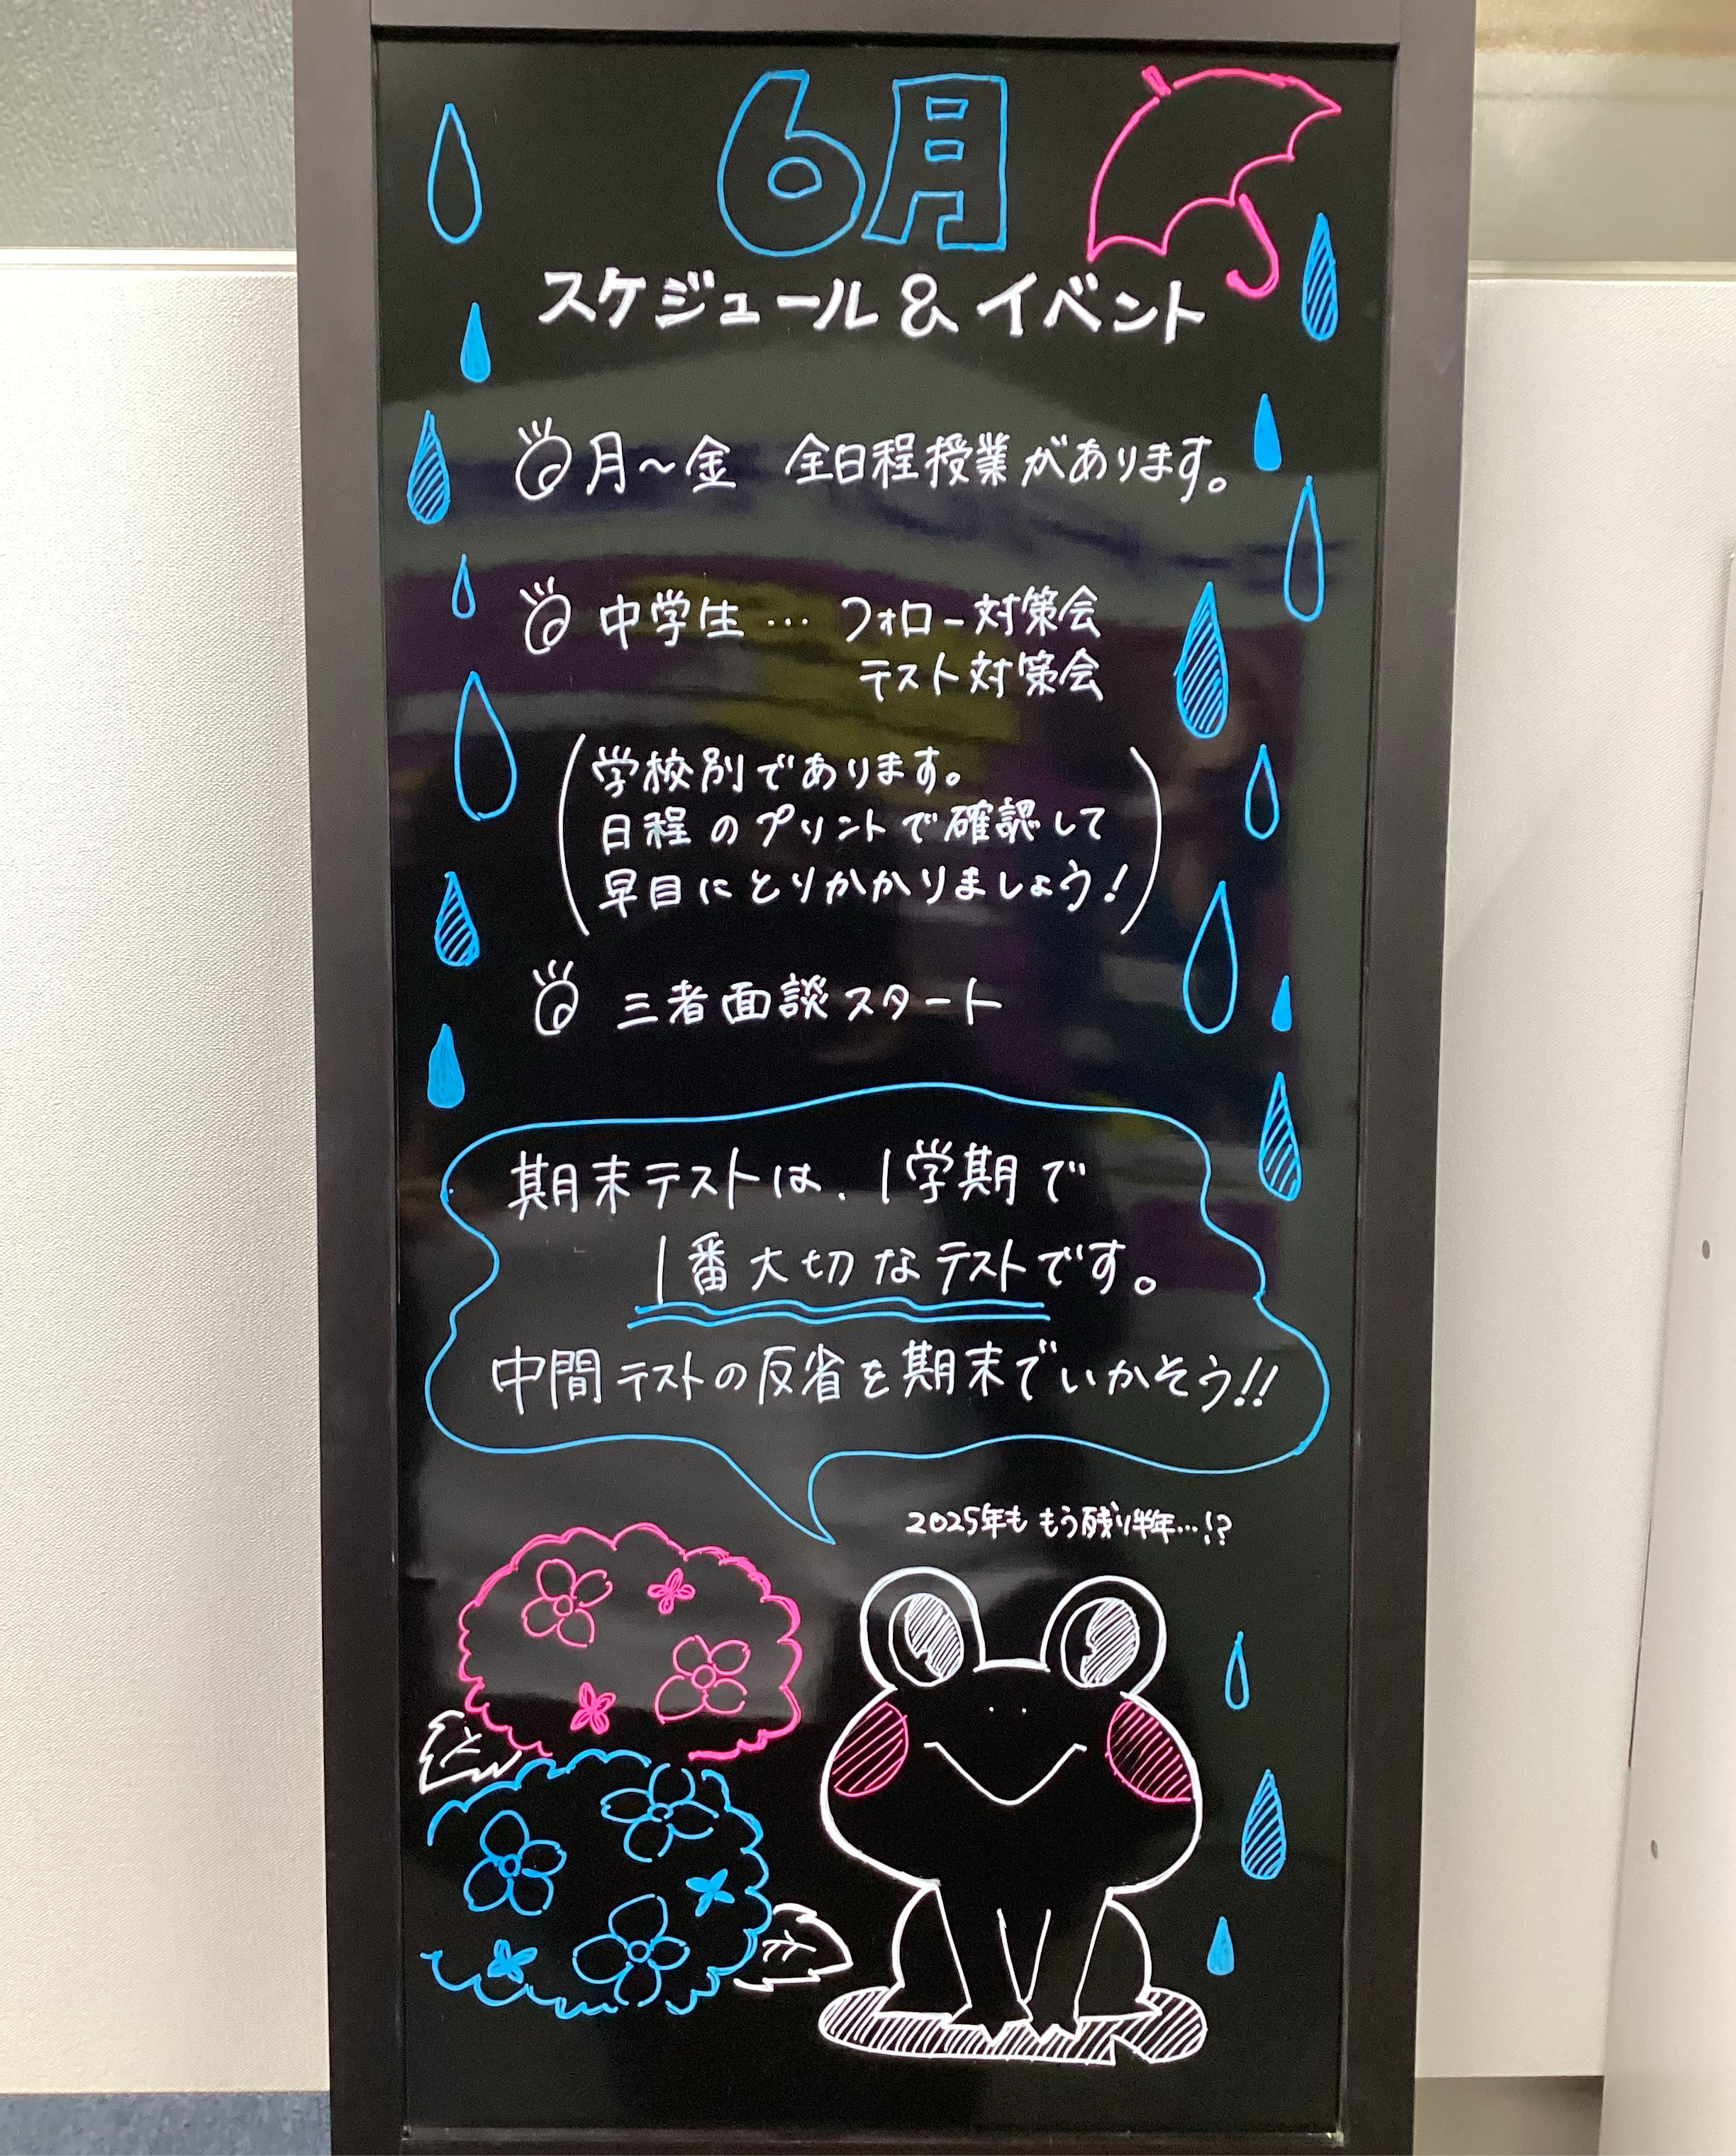 6月
スケジュール&イベント
月〜金 全日程授業があります。
中学生… フォロー対策会
テスト対策会
(学校別であります。
日程のプリントで確認して
早目にとりかかりましょう!)
三者面談スタート
期末テストは、1学期で
1番大切なテストです。
中間テストの反省を期末でいかそう!!
2025年も もう残り半年…!?